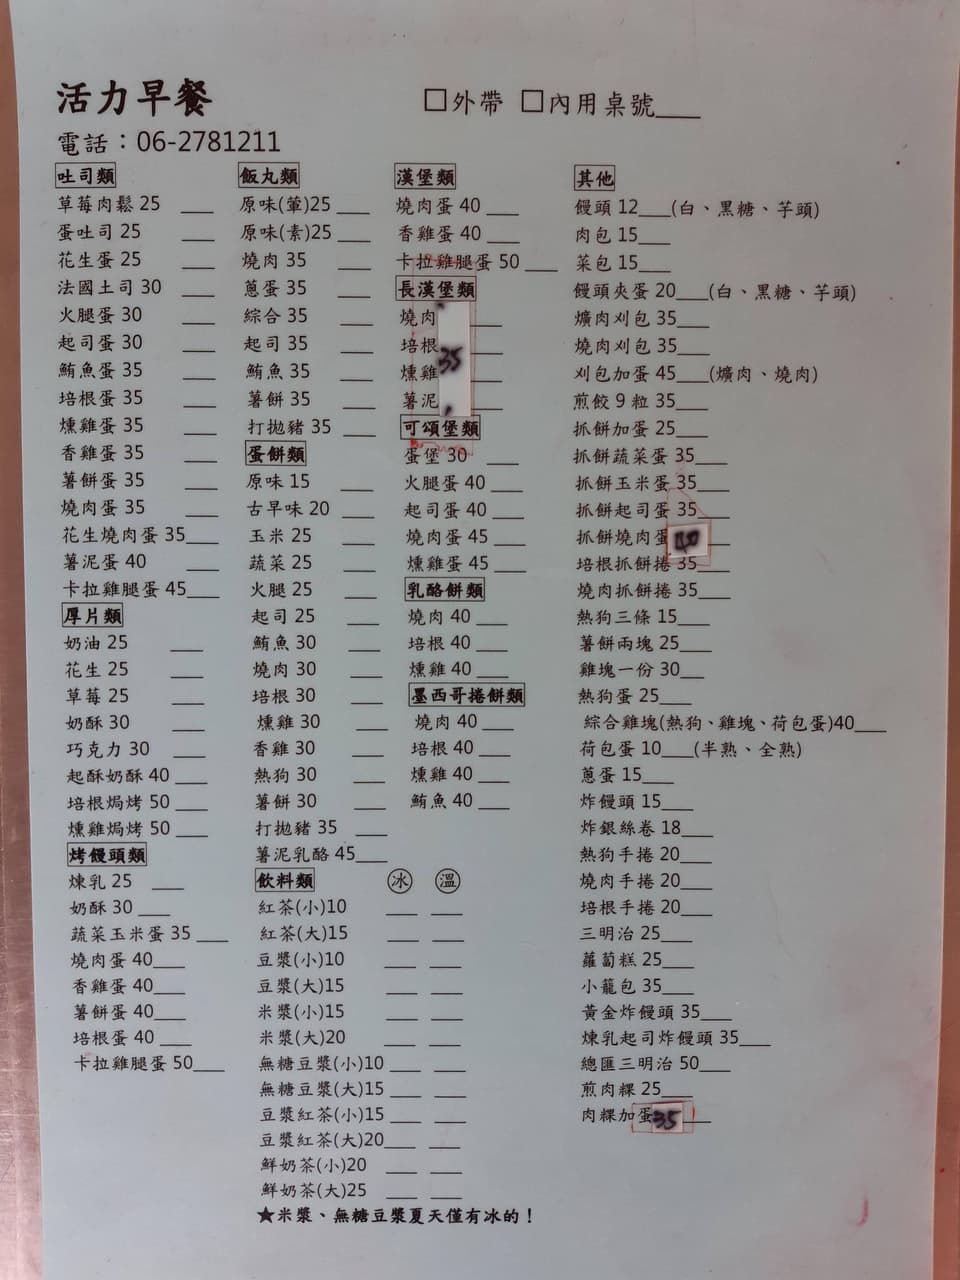 活力早餐
□外帶 □內用桌號____
電話：06-2781211
吐司類
草莓肉鬆 25 ___
蛋吐司 25 ___
花生蛋 25 ___
法國土司 30 ___
火腿蛋 30 ___
起司蛋 30 ___
鮪魚蛋 35 ___
培根蛋 35 ___
燻雞蛋 35 ___
香雞蛋 35 ___
薯餅蛋 35 ___
燒肉蛋 35 ___
花生燒肉蛋 35___
薯泥蛋 40 ___
卡拉雞腿蛋 45___
厚片類
奶油 25 ___
花生 25 ___
草莓 25 ___
奶酥 30 ___
巧克力 30 ___
起酥奶酥 40 ___
培根焗烤 50 ___
燻雞焗烤 50 ___
烤饅頭類
煉乳 25 ___
奶酥 30 ___
蔬菜玉米蛋 35 ___
燒肉蛋 40___
香雞蛋 40___
薯餅蛋 40___
培根蛋 40 ___
卡拉雞腿蛋 50___
飯丸類
原味(葷)25 ___
原味(素)25 ___
燒肉 35 ___
蔥蛋 35 ___
綜合 35 ___
起司 35 ___
鮪魚 35 ___
薯餅 35 ___
打拋豬 35 ___
蛋餅類
原味 15 ___
古早味 20 ___
玉米 25 ___
蔬菜 25 ___
火腿 25 ___
起司 25 ___
鮪魚 30 ___
燒肉 30 ___
培根 30 ___
燻雞 30 ___
香雞 30 ___
熱狗 30 ___
薯餅 30 ___
打拋豬 35 ___
薯泥乳酪 45___
飲料類 冰 溫
紅茶(小)10 ___ ___
紅茶(大)15 ___ ___
豆漿(小)10 ___ ___
豆漿(大)15 ___ ___
米漿(小)15 ___ ___
米漿(大)20 ___ ___
無糖豆漿(小)10 ___ ___
無糖豆漿(大)15 ___ ___
豆漿紅茶(小)15 ___ ___
豆漿紅茶(大)20___ ___
鮮奶茶(小)20 ___ ___
鮮奶茶(大)25 ___ ___
★米漿、無糖豆漿夏天僅有冰的！
漢堡類
燒肉蛋 40 ___
香雞蛋 40 ___
卡拉雞腿蛋 50 ___
長漢堡類
燒肉 ___
培根 35 ___
燻雞 ___
薯泥 ___
可頌堡類
蛋堡 30 ___
火腿蛋 40 ___
起司蛋 40 ___
燒肉蛋 45 ___
燻雞蛋 45 ___
乳酪餅類
燒肉 40 ___
培根 40 ___
燻雞 40 ___
墨西哥捲餅類
燒肉 40 ___
培根 40 ___
燻雞 40 ___
鮪魚 40 ___
其他
饅頭 12___(白、黑糖、芋頭)
肉包 15___
菜包 15___
饅頭夾蛋 20___(白、黑糖、芋頭)
爌肉刈包 35___
燒肉刈包 35___
刈包加蛋 45___(爌肉、燒肉)
煎餃 9 粒 35___
抓餅加蛋 25___
抓餅蔬菜蛋 35___
抓餅玉米蛋 35___
抓餅起司蛋 35___
抓餅燒肉蛋 40 ___
培根抓餅捲 35___
燒肉抓餅捲 35___
熱狗三條 15___
薯餅兩塊 25___
雞塊一份 30___
熱狗蛋 25___
綜合雞塊(熱狗、雞塊、荷包蛋)40___
荷包蛋 10___(半熟、全熟)
蔥蛋 15___
炸饅頭 15___
炸銀絲卷 18___
熱狗手捲 20___
燒肉手捲 20___
培根手捲 20___
三明治 25___
蘿蔔糕 25___
小籠包 35___
黃金炸饅頭 35___
煉乳起司炸饅頭 35___
總匯三明治 50___
煎肉粿 25___
肉粿加蛋 35 ___